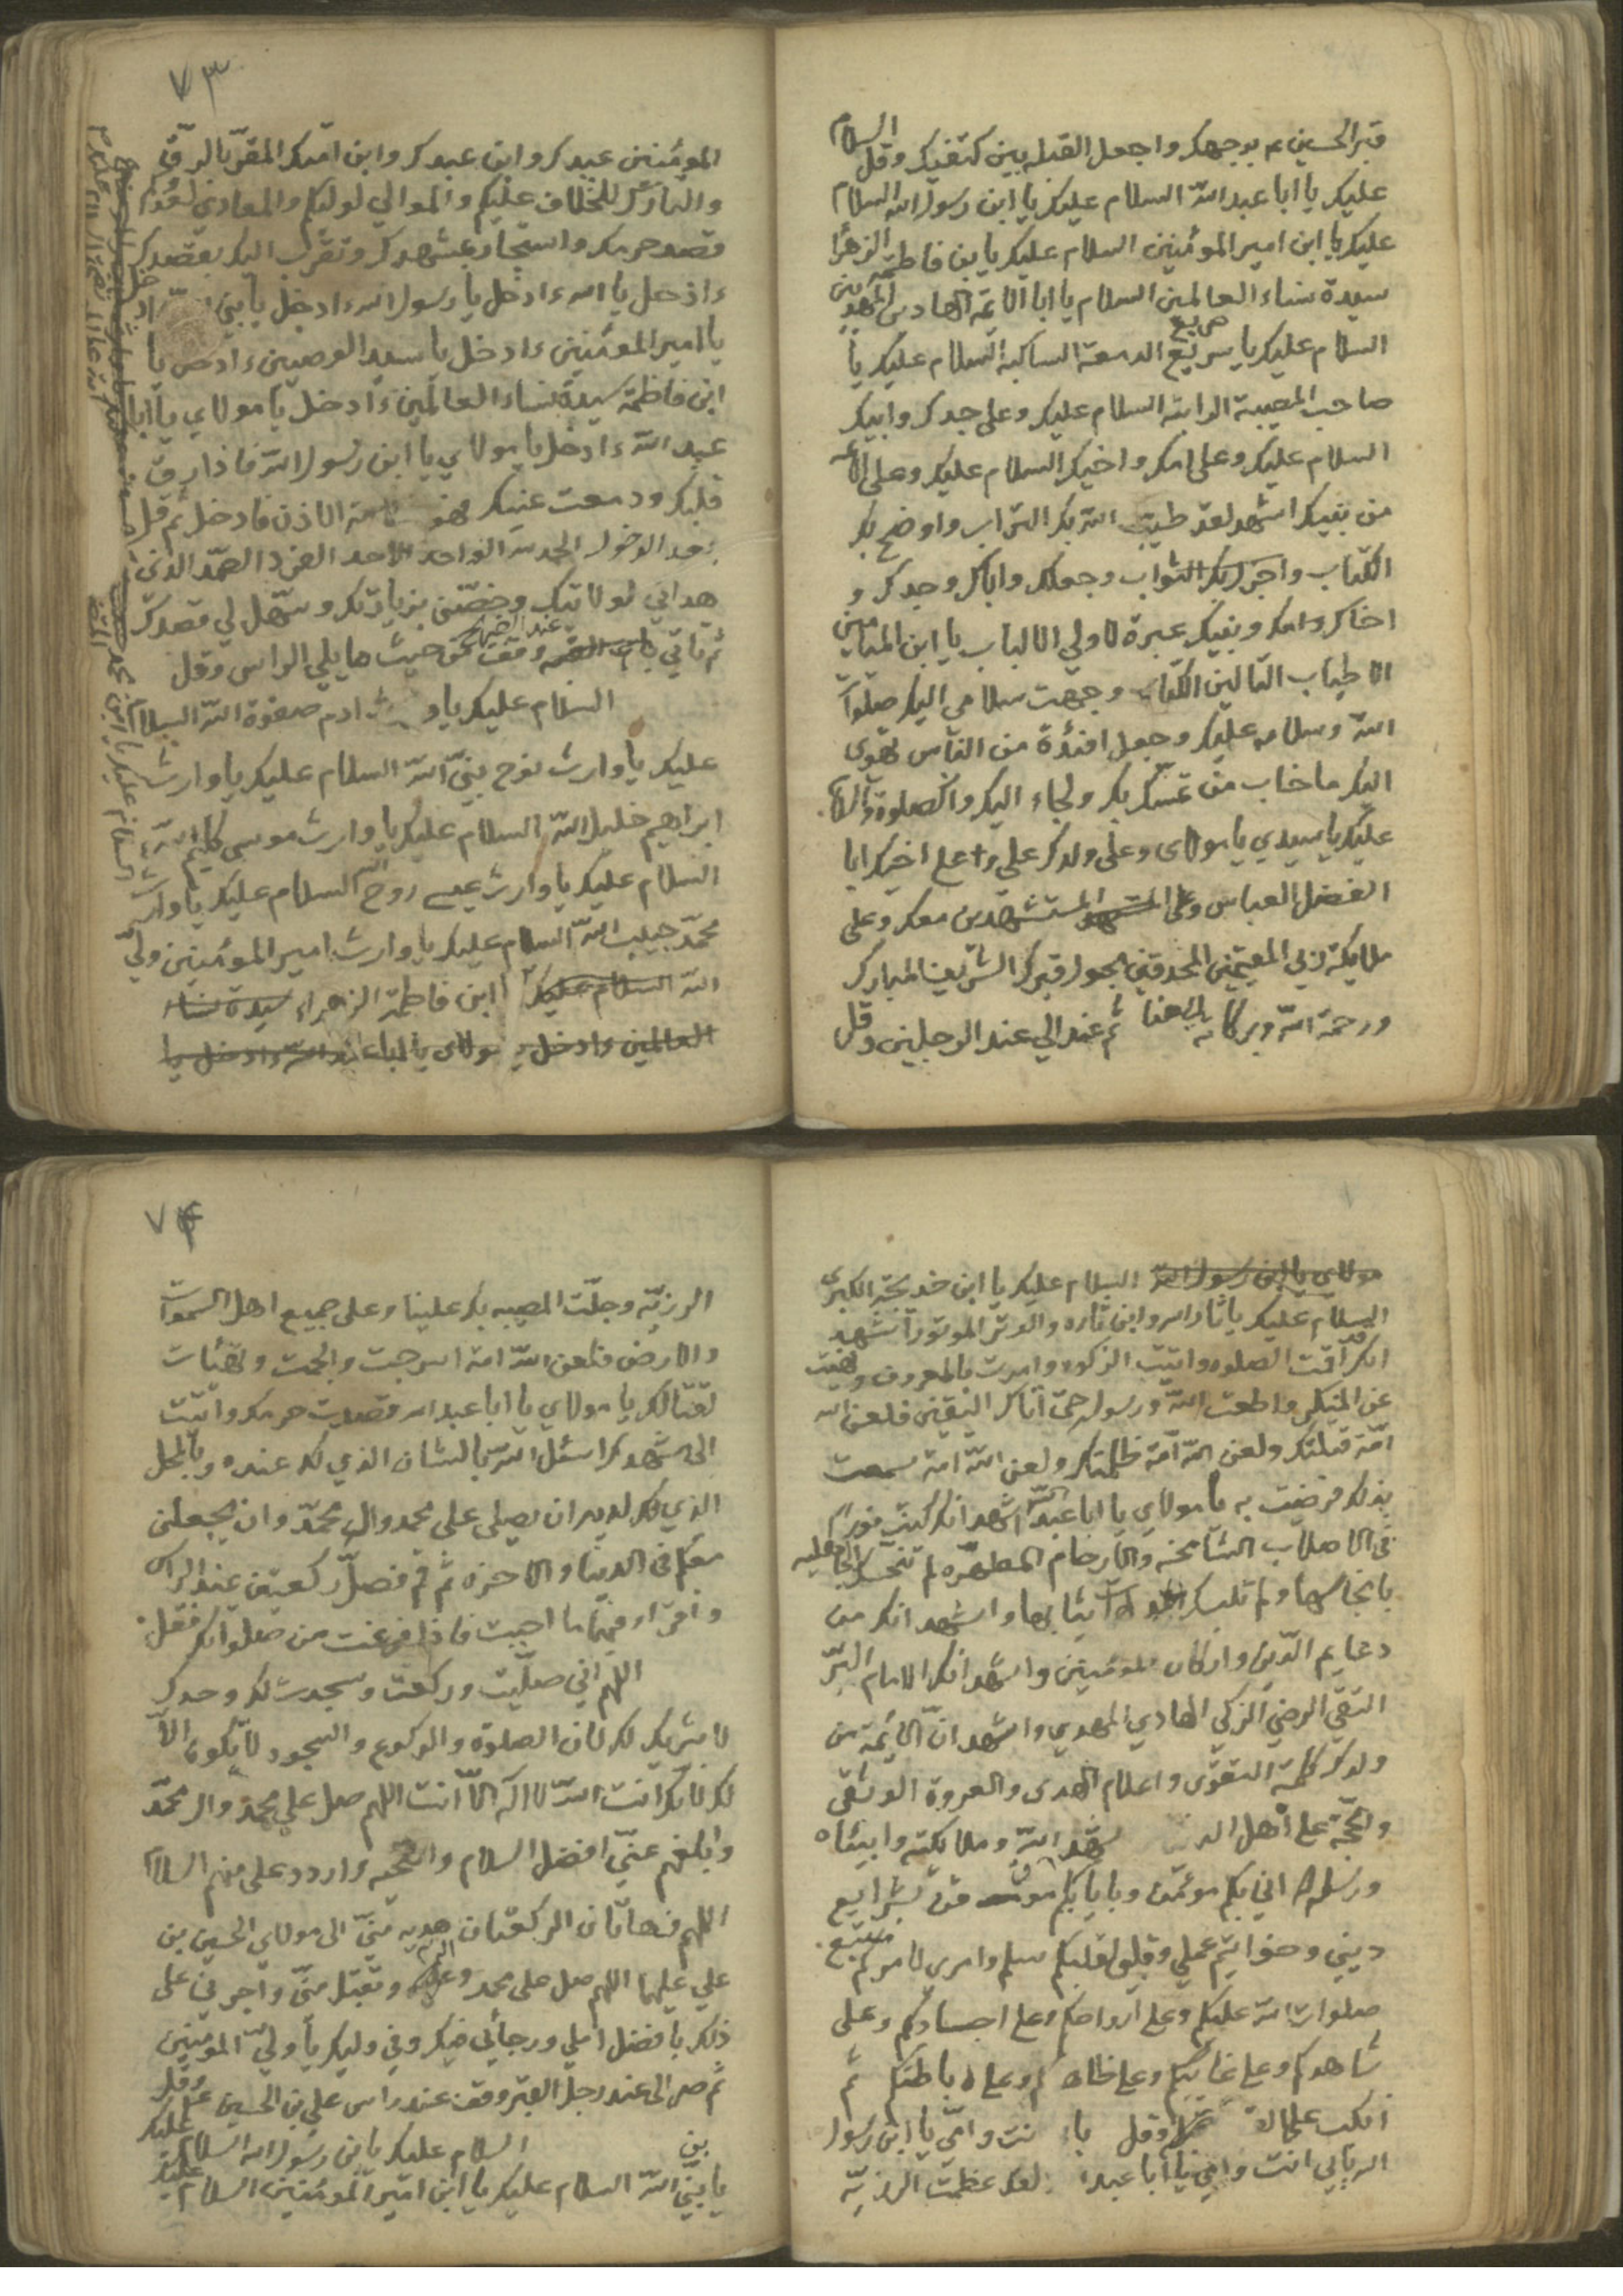 قبر الحسين ع بوجهك واجعل القبله بين كتفيك وقل السلام
عليك يا ابا عبد الله السلام عليك يا ابن رسول الله السلام
عليك يا ابن امير المؤمنين السلام عليك يا بن فاطمة الزهرا
سيدة نساء العالمين السلام يا ابا الائمة الهادين المهديين
السلام عليك يا سريع صريع الدمعة الساكبة السلام عليك يا
صاحب المصيبة الراتبة السلام عليك وعلى جدك وابيك
السلام عليك وعلى امك واخيك السلام عليك وعلى الائمه
من بنيك اشهد لقد طيب الله بك التراب واوضح بك
الكتاب واجزل بك الثواب وجعلك واباك وجدك و
اخاك وامك وبنيك عبرة لاولي الالباب يا ابن الميامين
الاطياب التالين الكتاب وجهت سلامي اليك صلوات
الله وسلامه عليك وجعل افئدة من الناس تهوى
اليك ما خاب من تمسك بك ولجاء اليك والصلوة والسلام
عليك يا سيدي يا مولاى وعلى ولدك علي وعلى اخيك ابا
الفضل العباس وعلى المستشهدين معك وعلى
ملايكة ربي المقيمين المحدقين بحول قبرك الشريف المبارك
ورحمة الله وبركاته الى هنا ثم عند الي عند الرجلين وقل
٧٣
المؤمنين عبدك وابن عبدك وابن امتك المقر بالرق
والتارك للخلاف عليكم والموالي لوليكم والمعادي لعدوكم
قصد حرمك واستجار بمشهدك وتقرب اليك بقصدك
ءادخل يا الله ءادخل يا رسول الله ءادخل يا نبي الله ءادخل
يا امير المؤمنين ءادخل يا سيد الوصيين ءادخل يا
ابن فاطمة سيدة نساء العالمين ءادخل يا مولاي يا ابا
عبد الله ءادخل يا مولاي يا ابن رسول الله فاذا رق
قلبك ودمعت عينك فهو علامة الاذن فادخل ثم قل
بعد الدخول الحمد لله الواحد الاحد الفرد الصمد الذي
هداني لولايتك وخصني بزيارتك وسهل لي قصدك
ثم تاتي باب القبه وقف عند الضريح من حيث ما يلي الراس وقل
السلام عليك يا وارث ادم صفوة الله السلام
عليك يا وارث نوح نبي الله السلام عليك يا وارث
ابراهيم خليل الله السلام عليك يا وارث موسى كليم الله
السلام عليك يا وارث عيسى روح الله السلام عليك يا وارث
محمد حبيب الله السلام عليك يا وارث امير المؤمنين ولي
الله السلام عليك ابن فاطمة الزهراء سيدة نساء
العالمين ءادخل يا مولاى يا اباعبد الله ءادخل يا
السلام عليك يا ابن محمد المصطفى
مولاي يا ابن رسول الله السلام عليك يا ابن خديجة الكبرى
السلام عليك يا ثار الله وابن ثاره والوتر الموتور اشهد
انك قد اقمت الصلوه واتيت الزكوه وامرت بالمعروف ونهيت
عن المنكر واطعت الله ورسوله حتى اتاك اليقين فلعن الله
امة قتلتك ولعن الله امة ظلمتك ولعن الله امة سمعت
بذلك فرضيت به يا مولاي يا ابا عبد الله اشهد انك كنت نورا
في الاصلاب الشامخة والارحام المطهره لم تنجسك الجاهليه
بانجاسها ولم تلبسك ثيابها واشهد انك من
دعايم الدين واركان المؤمنين واشهد انك الامام البر
التقي الرضي الزكي الهادي المهدي واشهد ان الائمة من
ولدك كلمة التقوى واعلام الهدى والعروة الوثقى
والحجة على اهل الدنيا اشهد الله وملائكته وانبيائه
ورسله اني بكم مؤمن وبايابكم موقن بشرايع
ديني وخواتيم عملي وقلبي لقلبكم سلم وامري لامركم متبع
صلوات الله عليكم وعلى ارواحكم وعلى اجسادكم وعلى
شاهدكم وعلى غائبكم وعلى ظاهركم وعلى باطنكم ثم
انكب على القبر وقل بابي انت وامي يا ابن رسول
الله بابي انت وامي يا ابا عبد الله لقد عظمت الرزية
٧٤
الرزية وجلت المصيبه بك علينا وعلى جميع اهل السموات
والارض فلعن الله امة اسرجت والجمت وتهيات
لقتالك يا مولاي يا ابا عبد الله قصدت حرمك واتيت
الى مشهدك اسئل الله بالشان الذي لك عنده وبالمحل
الذي لك لديه ان يصلى على محمد وال محمد وان يجعلني
معكم في الدنيا والاخرة ثم قم فصل ركعتين عند الراس
واقرء فيهما ما احببت فاذا فرغت من صلواتك فقل
اللهم اني صليت وركعت وسجدت لك وحدك
لا شريك لك لان الصلوة والركوع والسجود لا يكون الا
لك لانك انت الله لا اله الا انت اللهم صل على محمد وال محمد
وابلغهم عني افضل السلام والتحيه واردد على منهم السلام
اللهم فهاتان الركعتان هديه مني الى مولاي الحسين بن
علي عليهما اللهم صل على محمد وعليه وتقبل مني واجرني على
ذلك بافضل املي ورجائي فيك وفي وليك يا ولي المؤمنين
ثم صر الى عند رجل القبر وقف عند راس علي بن الحسين ع وقل
السلام عليك يا بن رسول الله السلام عليك
يا بن نبي الله السلام عليك يا ابن امير المؤمنين السلام عليك